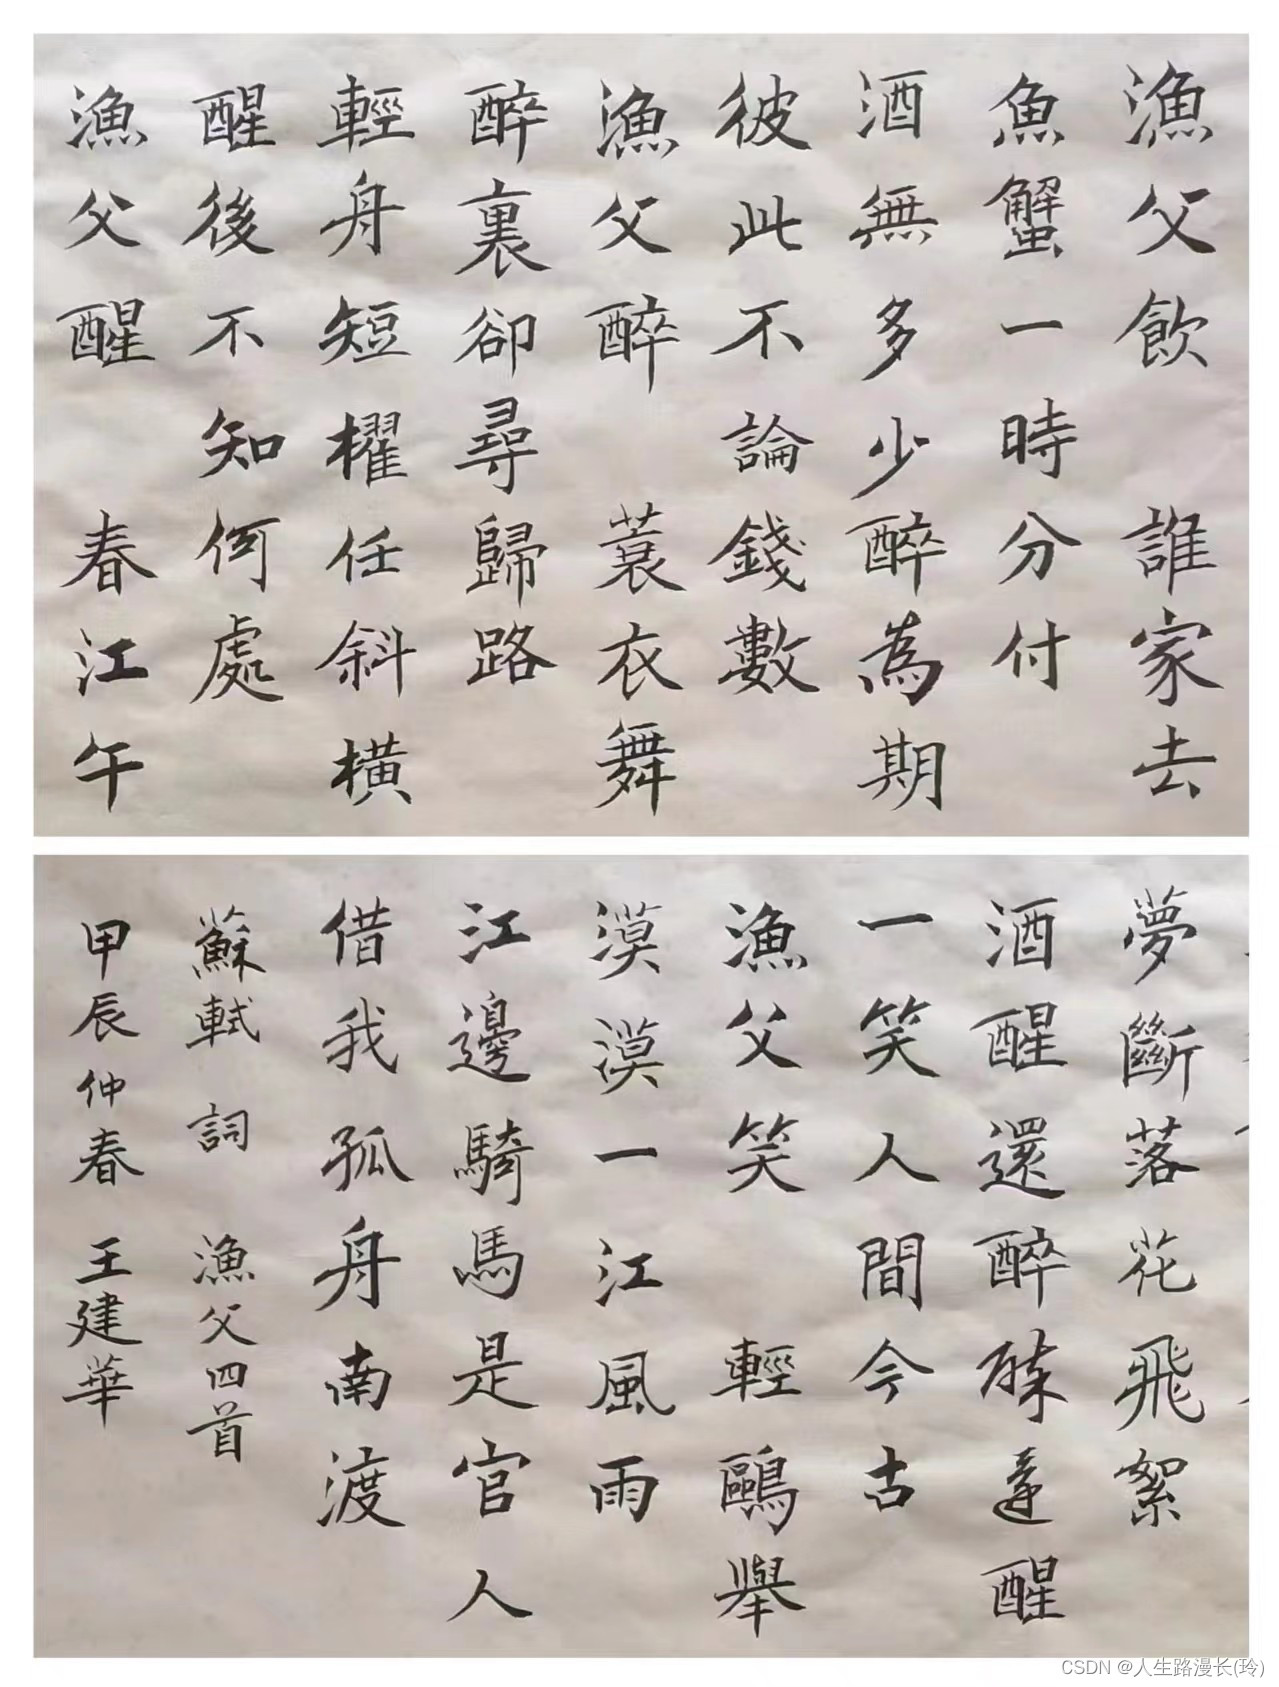 漁父飲 誰家去
魚蟹一時分付
酒無多少醉為期
彼此不論錢數
漁父醉 蓑衣舞
醉裏卻尋歸路
輕舟短櫂任斜橫
醒後不知何處
漁父醒 春江午
夢斷落花飛絮
酒醒還醉醉還醒
一笑人間今古
漁父笑 輕鷗舉
漠漠一江風雨
江邊騎馬是官人
借我孤舟南渡
蘇軾 詞 漁父四首
甲辰仲春 王建華
CSDN @人生路漫长(玲)